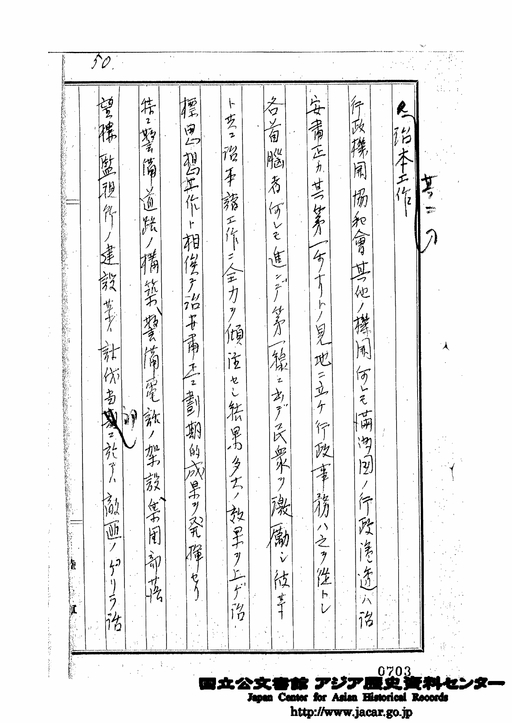 50.
其二ノ
治本工作
行政機関協和會其他ノ機関何レモ満洲国ノ行政滲透ハ治
安肅正カ其第一ナリトノ見地ニ立ケ行政事務ハ之ヲ従トシ
各首脳者何レモ進ンデ第一線ニ出デ民衆ヲ激励シ彼等
ト共ニ治本諸工作ニ全力ヲ傾注セシ結果多大ノ効果ヲ上ゲ治
標思想工作ト相俟テ治安肅正ニ劃期的成果ヲ発揮セリ
特ニ警備道路ノ構築、警備電話ノ架設、集団部落
望楼監視所ノ建設等ハ討伐当初ニ於テハ敵匪ノゲリラ治
0703
国立公文書館 アジア歴史資料センター
Japan Center for Asian Historical Records
http://www.jacar.go.jp